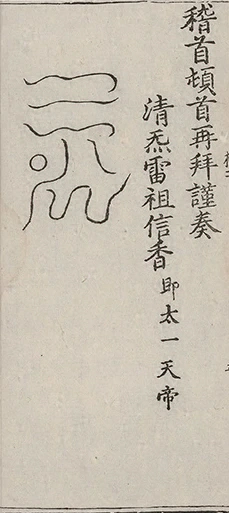 稽首頓首再拜謹奏
清炁雷祖信香即太一天帝